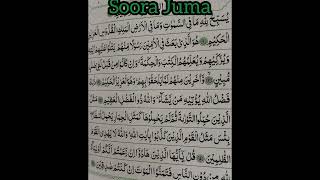 Soora Juma
يُسَبِّحُ لِلّٰهِ مَا فِي السَّمٰوٰتِ وَمَا فِي الْاَرْضِ الْمَلِكِ الْقُدُّوْسِ
الْحَكِيْمِ هُوَ الَّذِيْ بَعَثَ فِي الْاُمِّيّٖنَ رَسُوْلًا مِّنْهُمْ يَتْلُوْا
وَيُزَكِّيْهِمْ وَيُعَلِّمُهُمُ الْكِتٰبَ وَالْحِكْمَةَ وَاِنْ كَانُوْا مِنْ قَبْلُ
مُّبِيْنٍ وَّاٰخَرِيْنَ مِنْهُمْ لَمَّا يَلْحَقُوْا بِهِمْ وَهُوَ
فَضْلُ اللّٰهِ يُؤْتِيْهِ مَنْ يَّشَآءُ وَاللّٰهُ ذُو الْفَضْلِ الْعَظِيْمِ مَثَلُ
الَّذِيْنَ حُمِّلُوا التَّوْرٰىةَ ثُمَّ لَمْ يَحْمِلُوْهَا كَمَثَلِ الْحِمَارِ يَحْمِلُ
بِئْسَ مَثَلُ الْقَوْمِ الَّذِيْنَ كَذَّبُوْا بِاٰيٰتِ اللّٰهِ وَاللّٰهُ لَا يَهْدِي
الظّٰلِمِيْنَ قُلْ يٰٓاَيُّهَا الَّذِيْنَ هَادُوْٓا اِنْ زَعَمْتُمْ اَنَّكُمْ
لِلّٰهِ مِنْ دُوْنِ النَّاسِ فَتَمَنَّوُا الْمَوْتَ اِنْ كُنْتُمْ